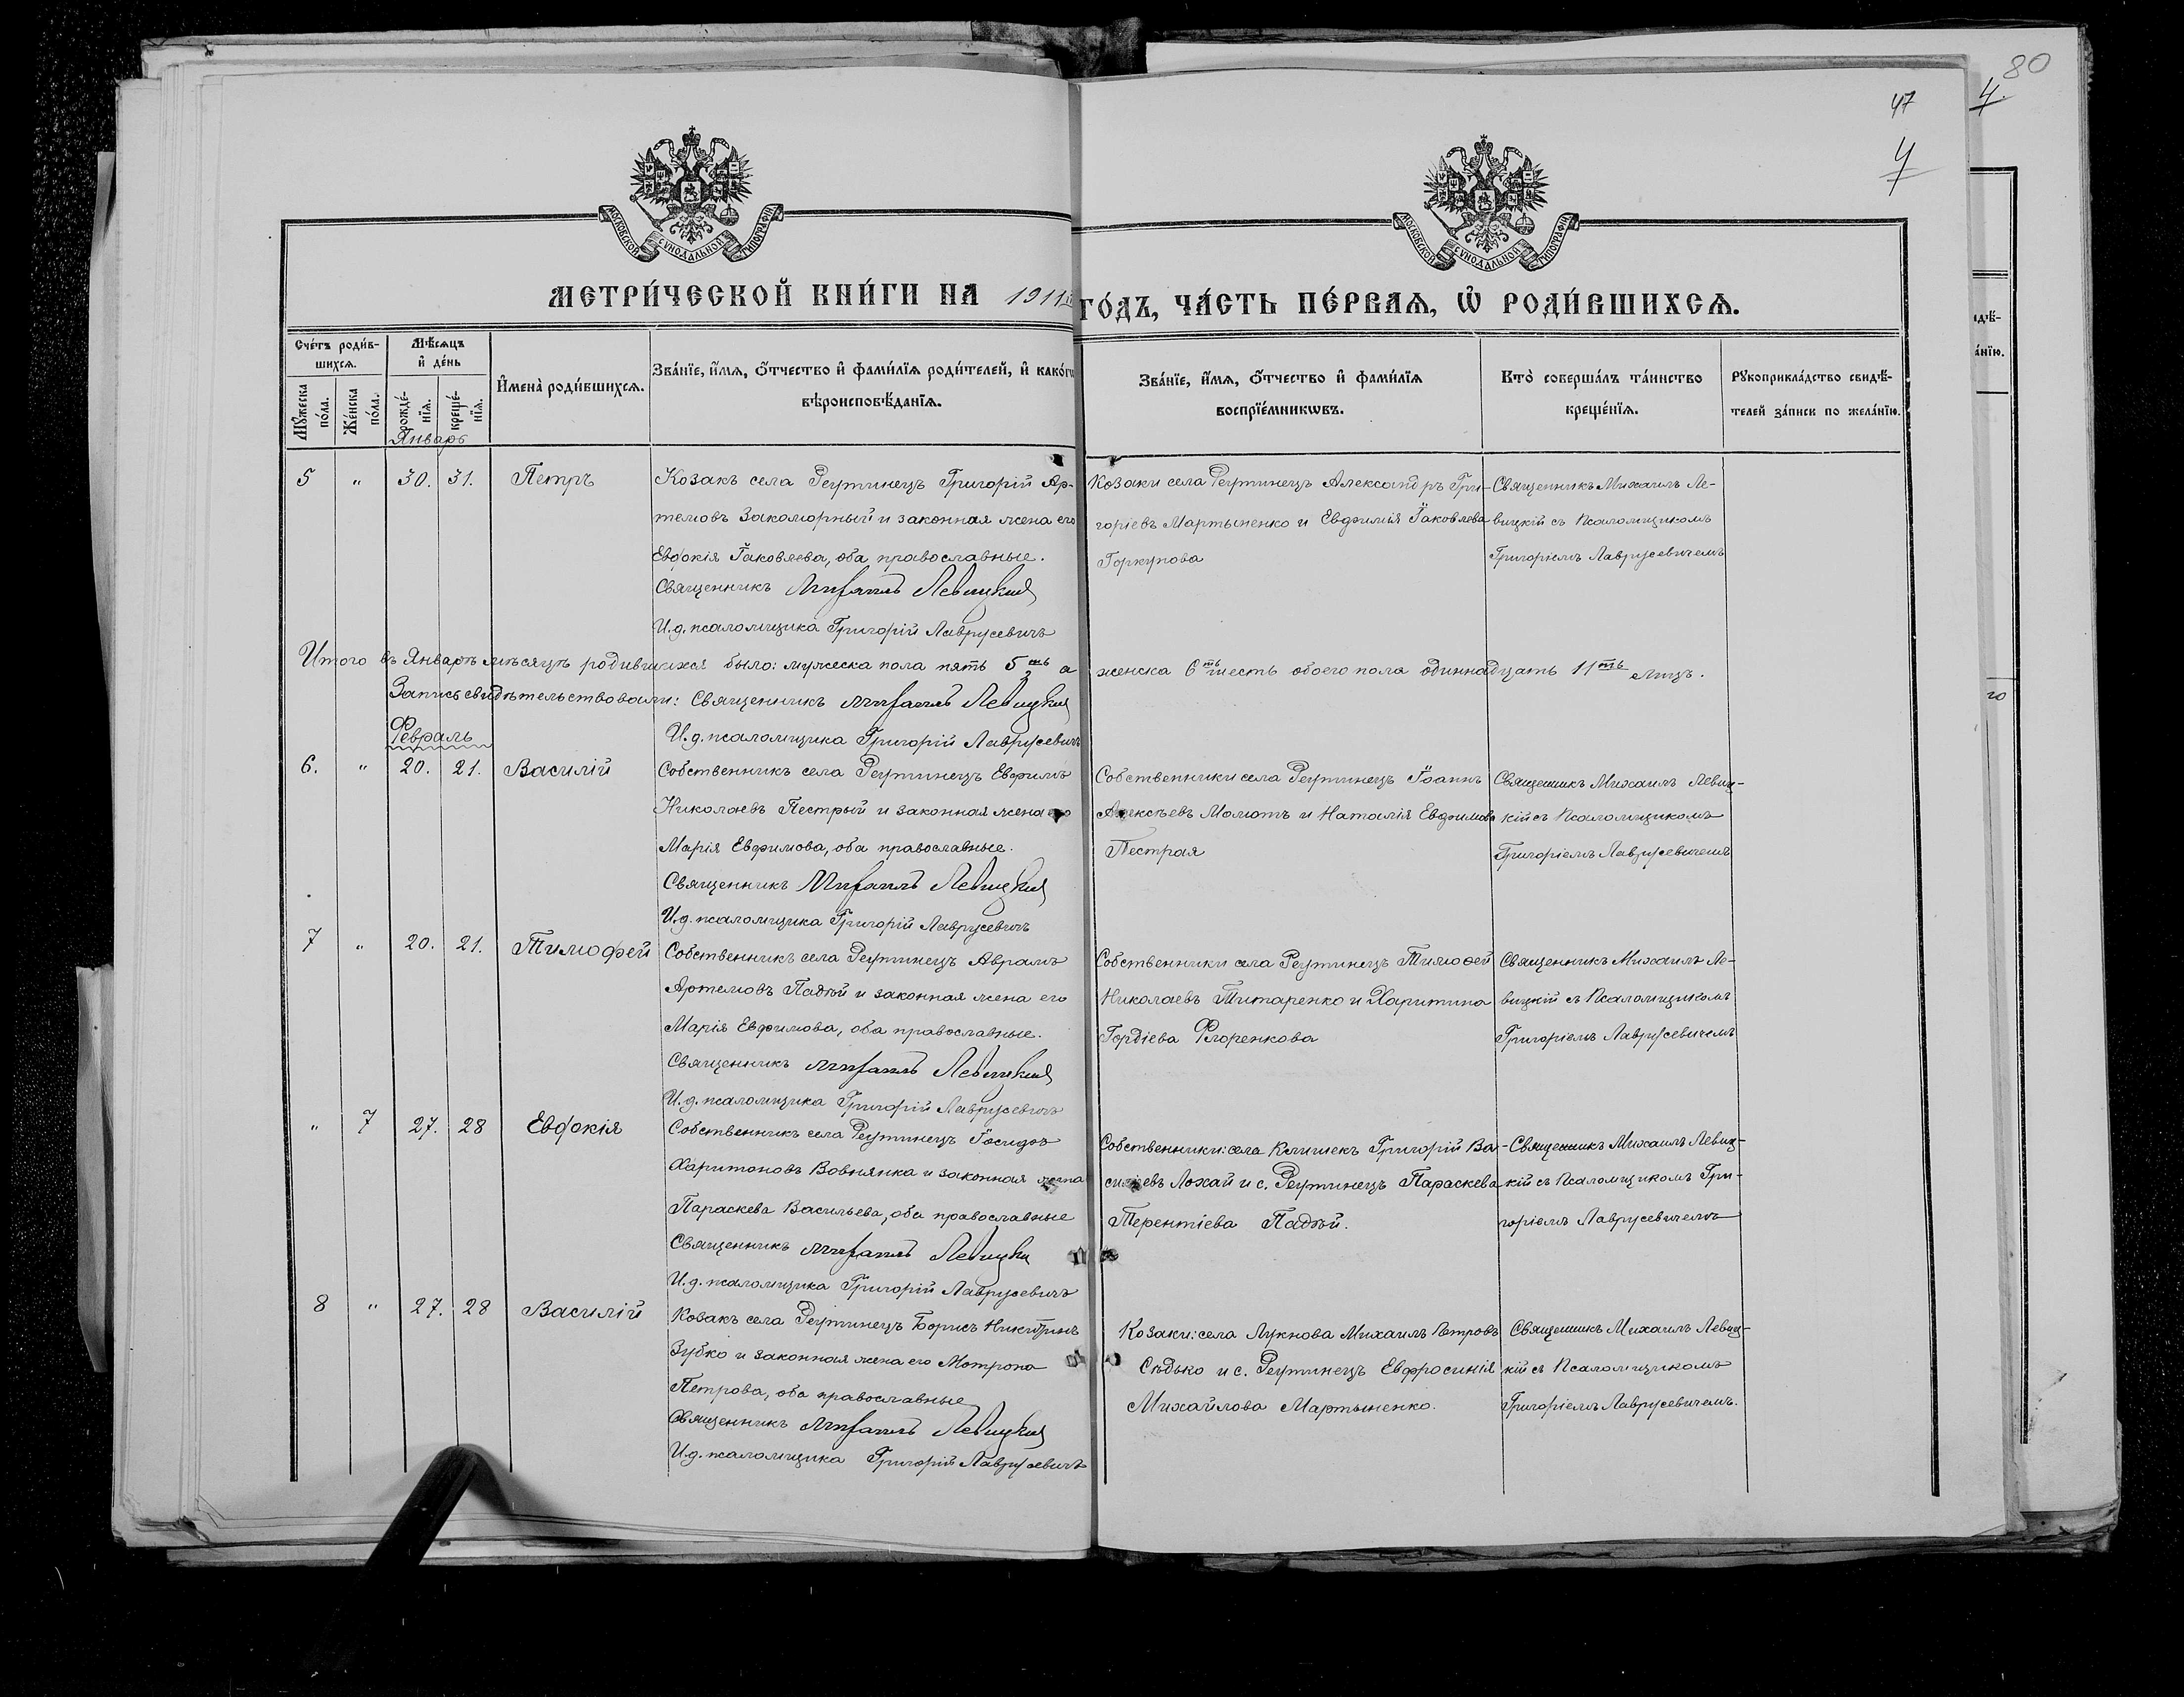 80
4.
47
4
МОСКОВСКОЙ СѴНОДАЛЬНОЙ ТИПОГРАФІИ
МОСКОВСКОЙ СѴНОДАЛЬНОЙ ТИПОГРАФІИ
МЕТРИ́ЧЕСКОЙ КНИ́ГИ НА 1911 ГО́ДЪ, ЧА́СТЬ ПЕ́РВАѦ, Ѡ҆ РОДИ́ВШИХСѦ.
Сче́тъ роди́в-
шихсѧ.
Мꙋ́жеска
по́ла.
Же́нска
по́ла.
Мѣ́сѧцъ
и҆ де́нь
рожде́-
нїѧ.
креще́-
нїѧ.
И҆мена̀ роди́вшихсѧ.
Зва́нїе, и҆́мѧ, ѻ҆́тчество и҆ фами́лїѧ роди́телей, и҆ како́гѡ
вѣроисповѣ́данїѧ.
Зва́нїе, и҆́мѧ, ѻ҆́тчество и҆ фами́лїѧ
воспрїе́мникѡвъ.
Кто̀ соверша́лъ та́инство
креще́нїѧ.
Рꙋкоприкла́дство свидѣ́-
телей за́писи по жела́нїю.
Январь
5 " 30. 31. Петръ
Козакъ села Реутинецъ Григорій Ар-
темовъ Закоморный и законная жена его
Евдокія Іаковлева, оба православные.
Священникъ Михаилъ Левицкій
И.д. псаломщика Григорій Лаврусевичъ
Козаки села Реутинецъ Александръ Гри-
горіевъ Мартыненко и Евфимія Іаковлева
Горкунова
Священникъ Михаилъ Ле-
вицкій съ Псаломщикомъ
Григоріемъ Лаврусевичемъ
Итого въ Январѣ мѣсяцѣ родившихся было: мужеска пола пять 5ть а женска 6ть шесть обоего пола одиннадцать 11ть лицъ.
Запись свидѣтельствовали: Священникъ Михаилъ Левицкій
И.д. псаломщика Григорій Лаврусевичъ
Февраль
6. " 20. 21. Василій
Собственникъ села Реутинецъ Евфимъ
Николаевъ Пестрый и законная жена его
Марія Евфимова, оба православные.
Священникъ Михаилъ Левицкій
И.д. псаломщика Григорій Лаврусевичъ
Собственники села Реутинецъ Іоаннъ
Алексѣевъ Мамотъ и Наталія Евфимова
Пестрая
Священникъ Михаилъ Левиц-
кій съ Псаломщикомъ
Григоріемъ Лаврусевичемъ
7 " 20. 21. Тимофей
Собственникъ села Реутинецъ Аврамъ
Артемовъ Падѣй и законная жена его
Марія Евфимова, оба православные.
Священникъ Михаилъ Левицкій
И.д. псаломщика Григорій Лаврусевичъ
Собственники села Реутинецъ Тимоѳей
Николаевъ Титаренко и Харитина
Гордіева Флоренкова
Священникъ Михаилъ Ле-
вицкій съ Псаломщикомъ
Григоріемъ Лаврусевичемъ
" 7 27. 28 Евдокія
Собственникъ села Реутинецъ Іосифъ
Харитоновъ Вовнянка и законная жена
Параскева Васильева, оба православные
Священникъ Михаилъ Левицкій
И.д. псаломщика Григорій Лаврусевичъ
Собственники: села Клишекъ Григорій Ва-
силіевъ Лохай и с. Реутинецъ Параскева
Терентіева Падѣй.
Священникъ Михаилъ Левиц-
кій съ Псаломщикомъ Гри-
горіемъ Лаврусевичемъ
8 " 27. 28 Василій
Козакъ села Реутинецъ Борисъ Никитинъ
Зубко и законная жена его Мотрона
Петрова, оба православные
Священникъ Михаилъ Левицкій
И.д. псаломщика Григорій Лаврусевичъ
Козаки: села Лукнова Михаилъ Петровъ
Сѣдько и с. Реутинецъ Евфросинія
Михайлова Мартыненко.
Священникъ Михаилъ Левиц-
кій съ Псаломщикомъ
Григоріемъ Лаврусевичемъ.